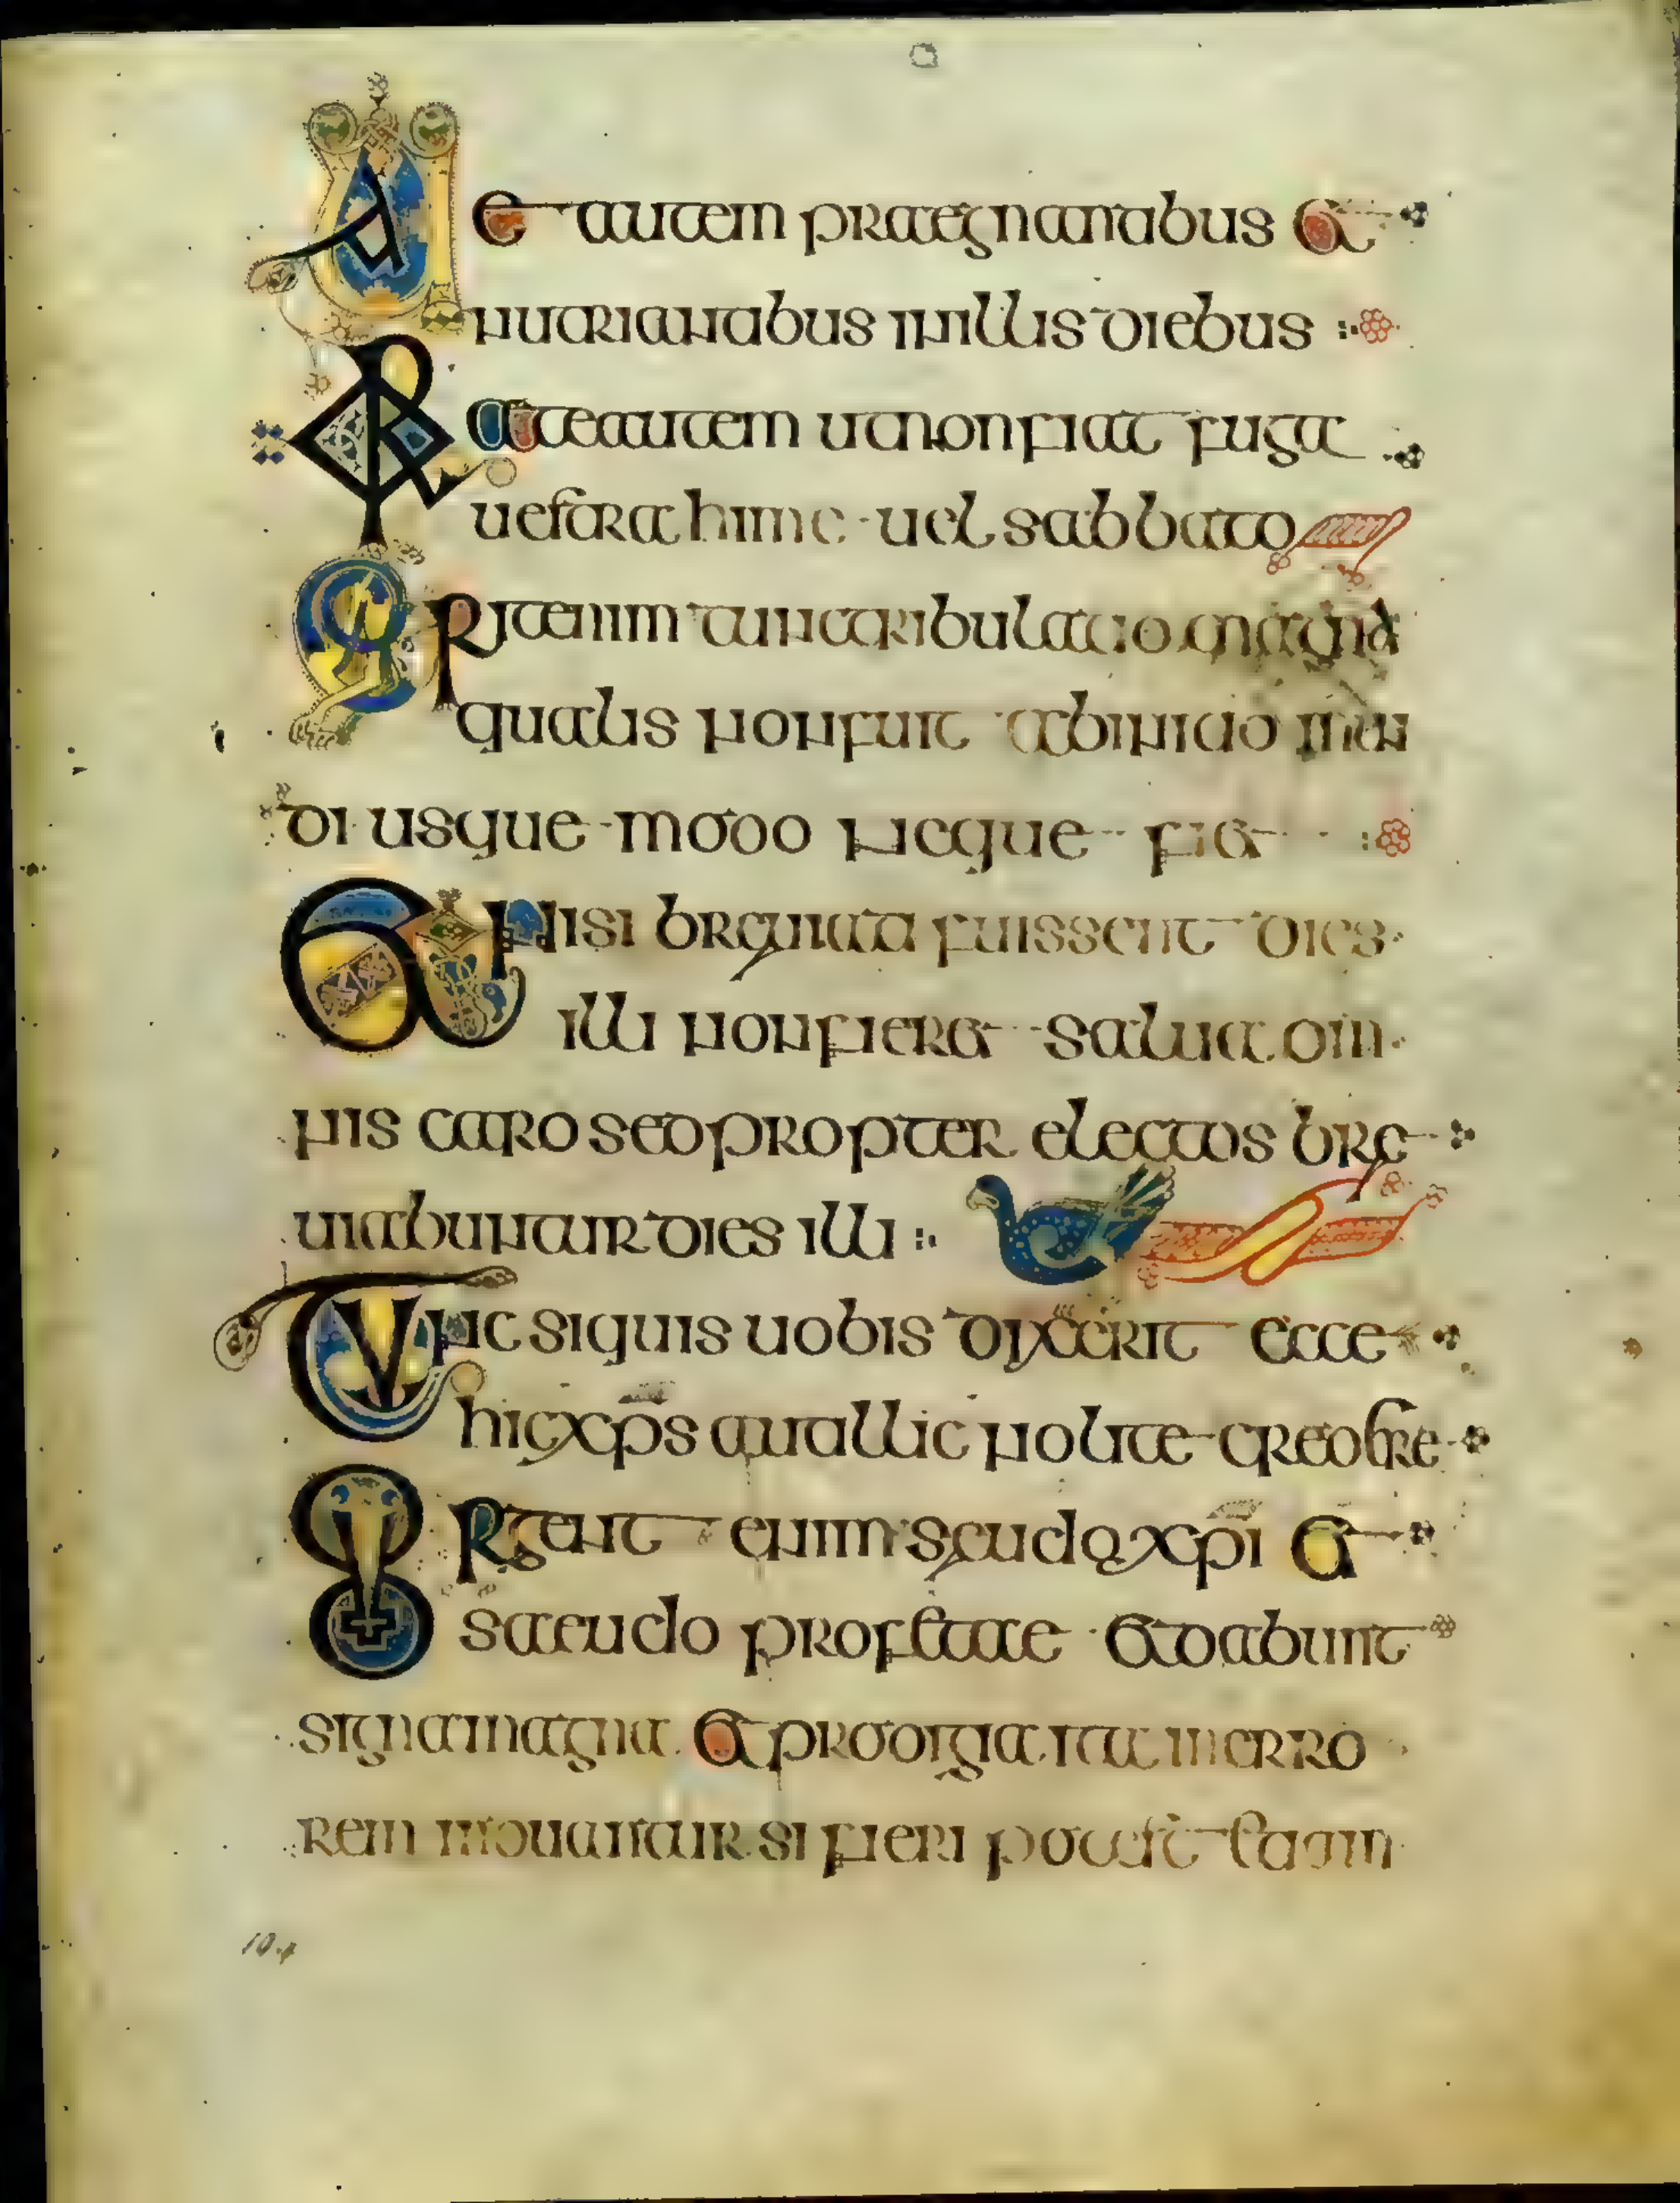 Uae autem praegnantibus et
nutrientibus inillis diebus
Orate autem utnonfiat fuga
uestra hieme uel sabbato
Erit enim tunc tribulatio magna
qualis nonfuit abinitio mun
di usque modo neque fiet
Et nisi breuiati fuissent dies
illi nonfieret salua om
nis caro sed propter electos bre
uiabuntur dies illi
Tunc siquis uobis dixerit ecce
hic xp̄s aut illic nolite credere
Surgent enim seudo xp̄i et
saeudo profetae et dabunt
signa magna et prodigia ita in erro
rem mouantur si fieri potest etiam
104